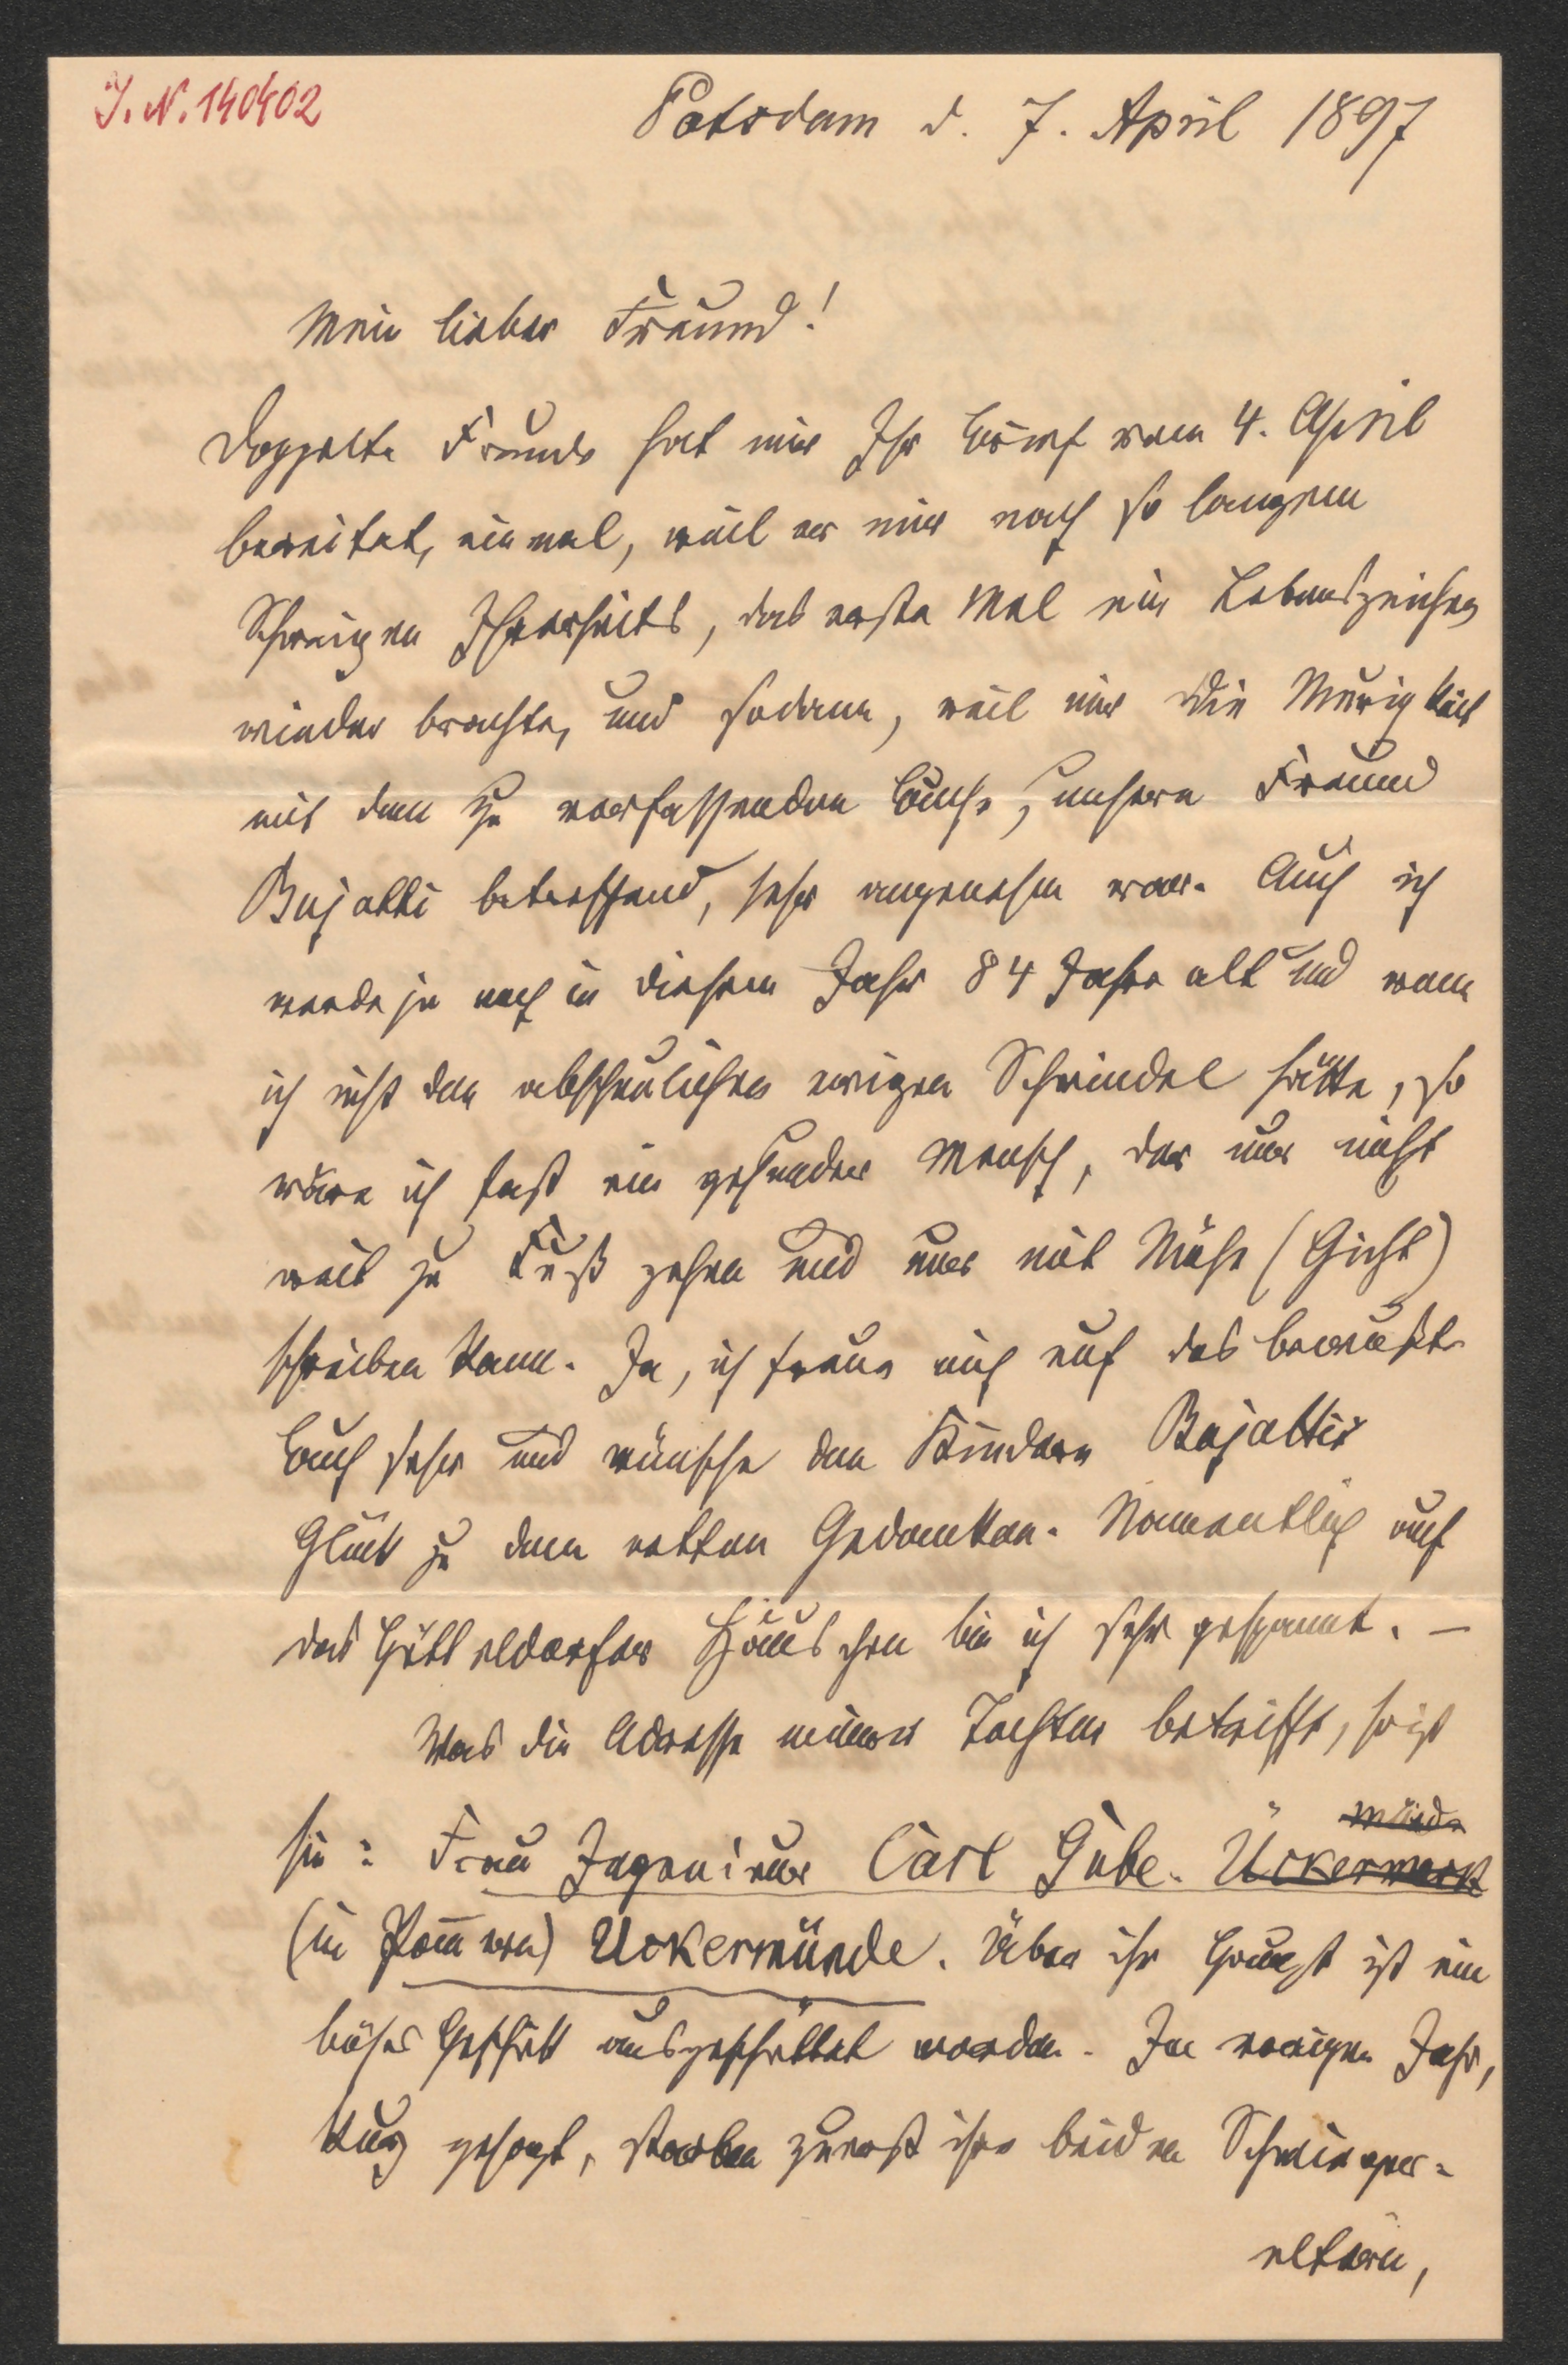 J. N. 140402
Potsdam d. 7. April 1897
Mein lieber Freund!
Doppelte Freude hat mir Ihr Brief vom 4. April
bereitet, einmal, weil er mir nach so langem
Schweigen Ihrerseits, das erste Mal ein Lebenszeichen
wieder brachte, und sodann, weil mir die Neuigkeit
mit dem zu verfassenden Buche, unsern Freund
Bujatti betreffend, sehr angenehm war. Auch ich
werde ja noch in diesem Jahr 84 Jahre alt und wenn
ich nicht den abscheulichen ewigen Schwindel hätte, so
wäre ich fast ein gesunder Mensch, der nur nicht
weit zu Fuß gehen und nur mit Mühe (Gicht)
schreiben kann. Ja, ich freue mich auf das bewußte
Buch sehr und wünsche den Kindern Bujattis
Glück zu dem netten Gedanken. Namentlich auf
das Hütteldorfer Häuschen bin ich sehr gespannt. —
Was die Adresse meiner Tochter betrifft, so ist
münde
sie: Frau Ingenieur Carl Gube. Ückermark
(in Pommern) Uckermünde. Über ihr Haupt ist ein
böses Geschick ausgeschüttet worden. Im vorigen Jahr,
kurz gesagt, starben zuerst ihre beiden Schwieger=
eltern,